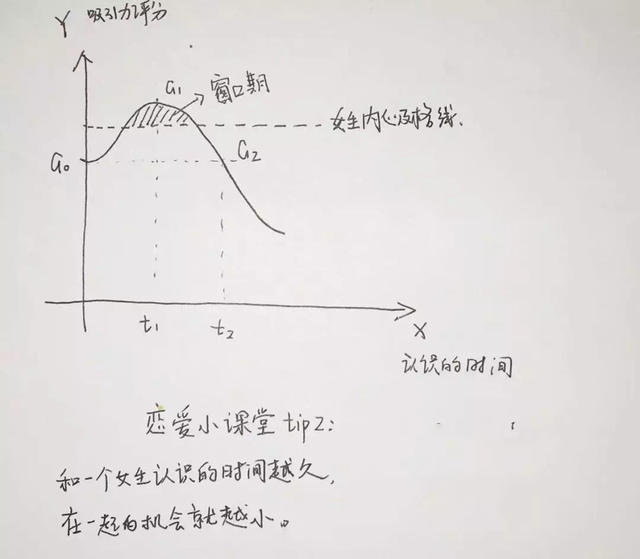 Y 吸引力评分
a₁
窗口期
女生内心及格线.
a₀
a₂
t₁
t₂
X
认识的时间
恋爱小课堂 tip2:
和一个女生认识的时间越久,
在一起的机会就越小。